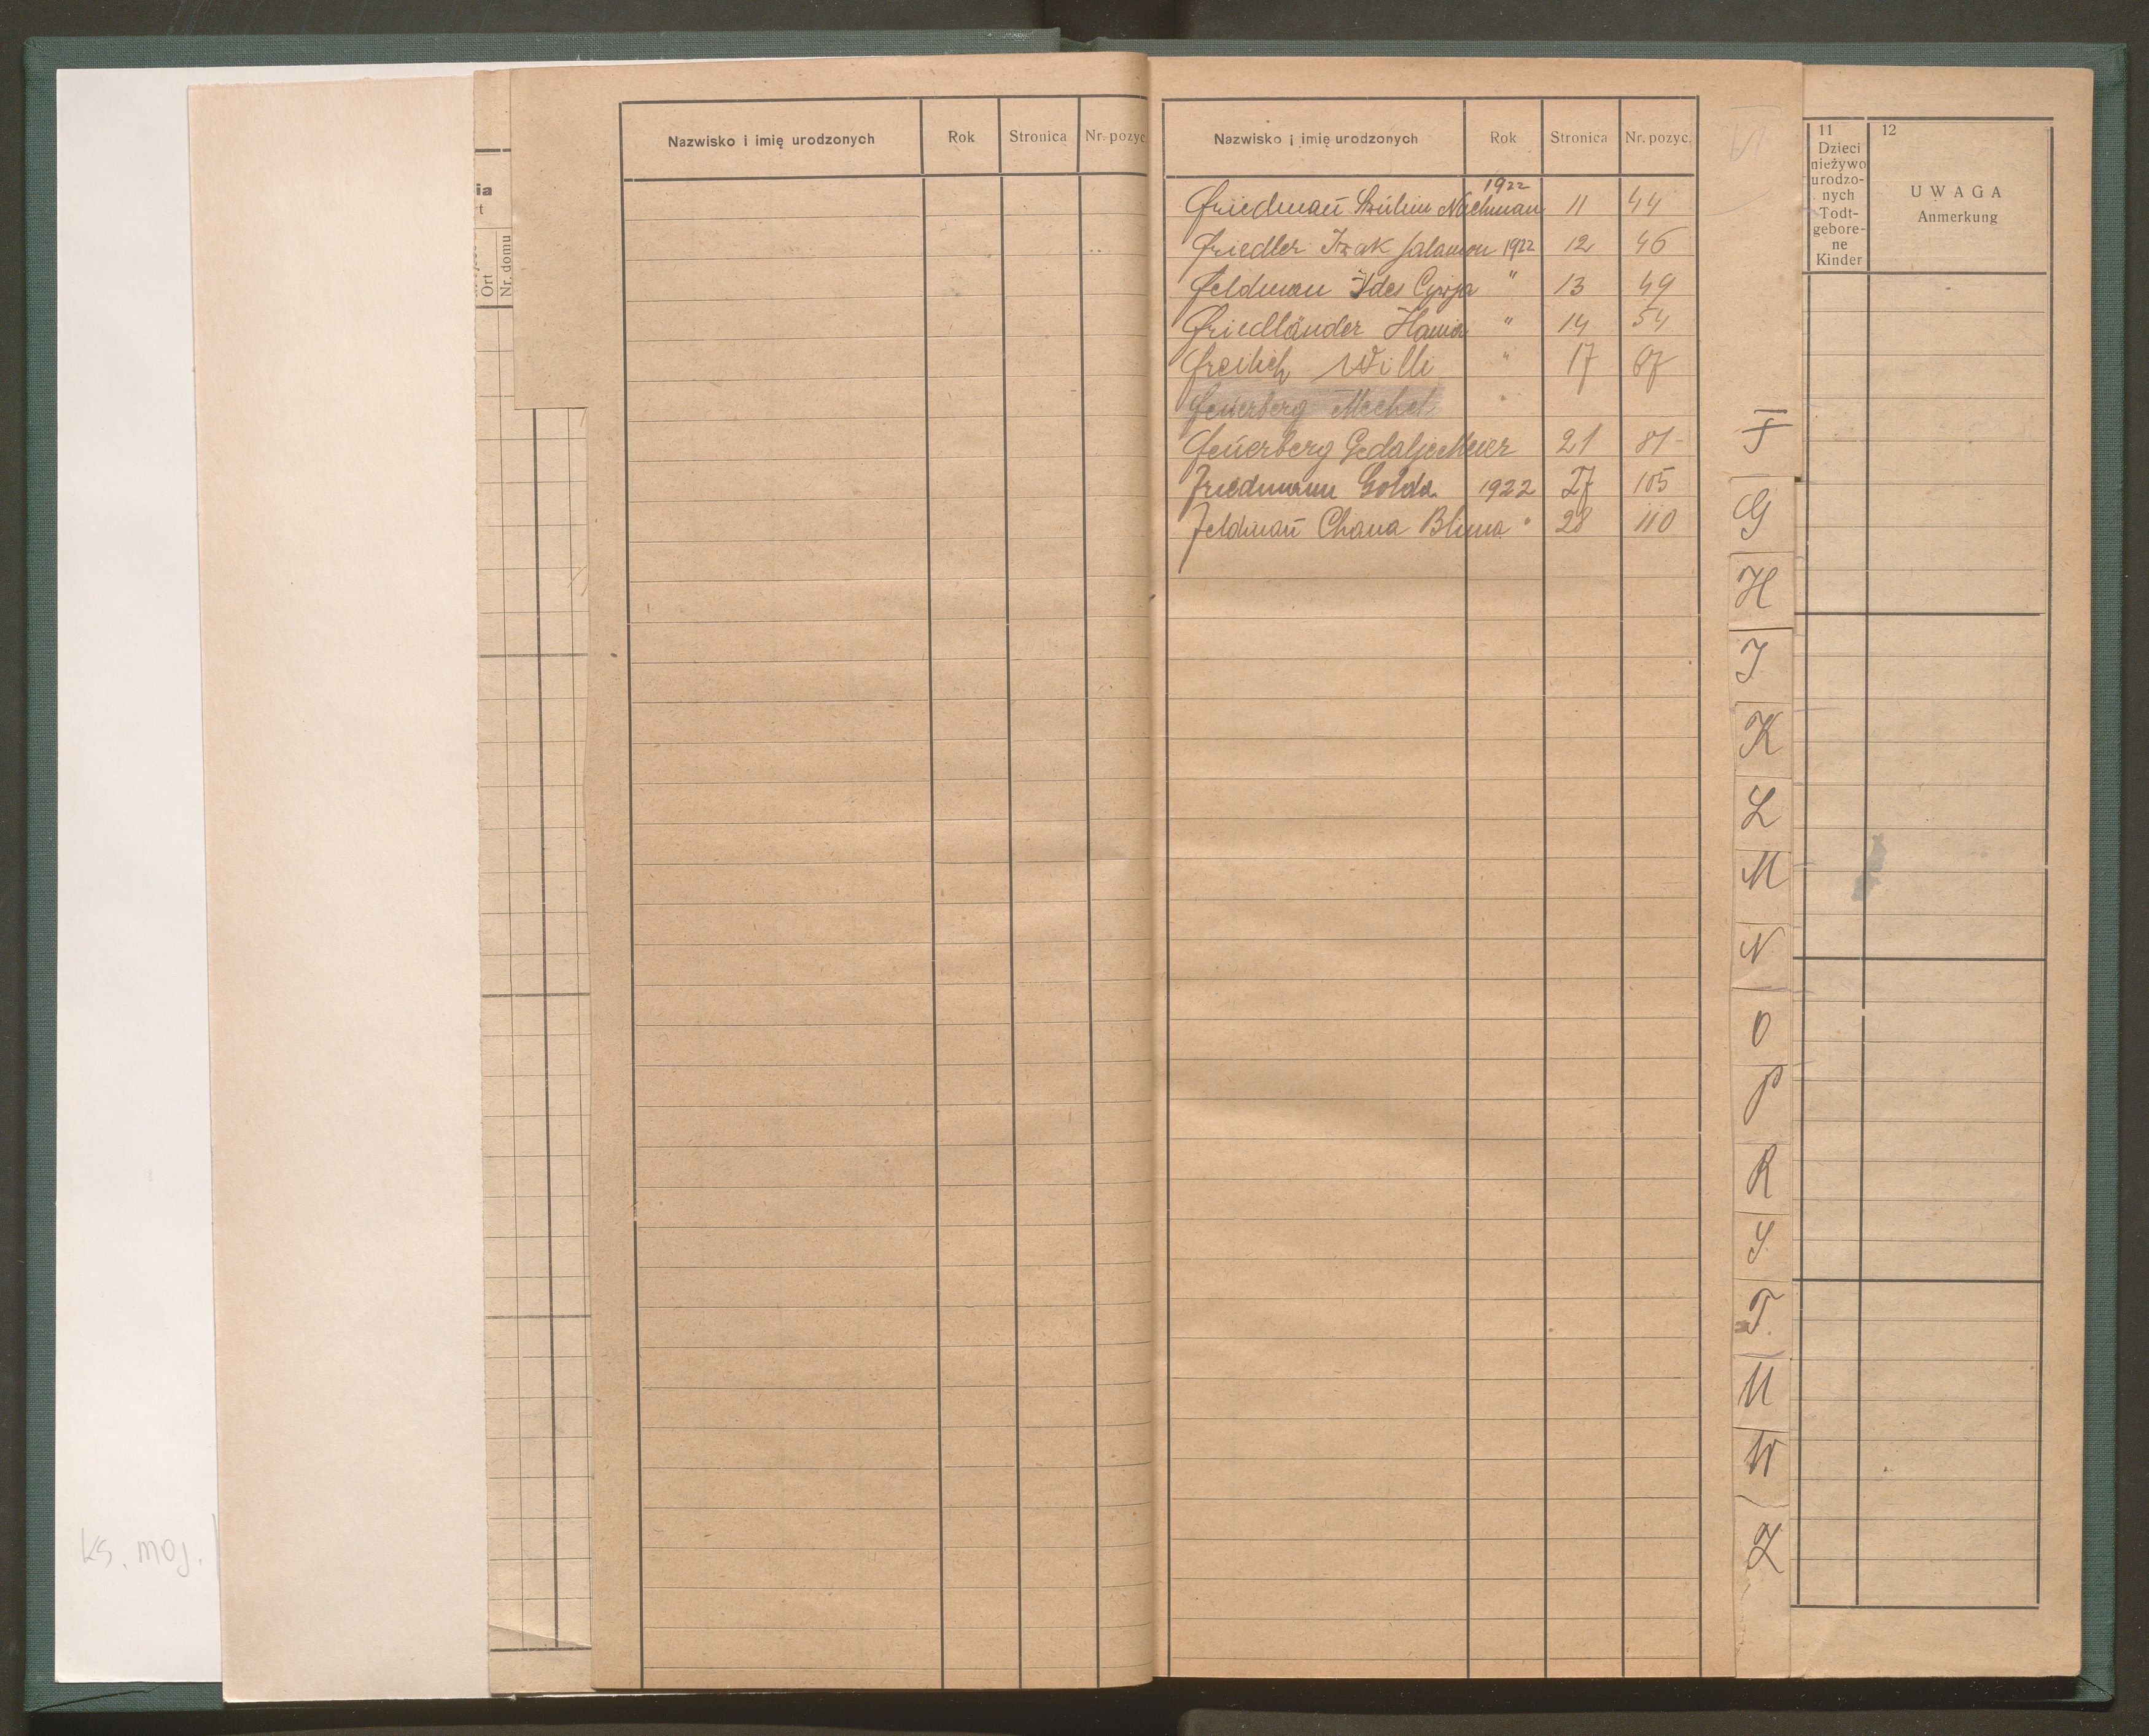 ia
t
Ort
Nr. domu
Nazwisko i imię urodzonych Rok Stronica Nr. pozyc.
Nazwisko i imię urodzonych Rok Stronica Nr. pozyc.
Friedmann Nachman 1922 11 44
Friedler Izak Salamon 1922 12 46
Feldman Ides Cywja " 13 49
Friedländer Hania " 14 54
Freilich Willi " 17 67
Feuerberg Mechel "
Feuerberg Gedalje Meier 21 81
Friedmann Golda 1922 27 105
Feldmann Chana Bluma " 28 110
F
G
H
I
K
L
M
N
O
P
R
S
T.
U
W
Z
11
Dzieci
nieżywo
urodzo-
nych
Todt-
gebore-
ne
Kinder
12
UWAGA
Anmerkung
ks. moj.